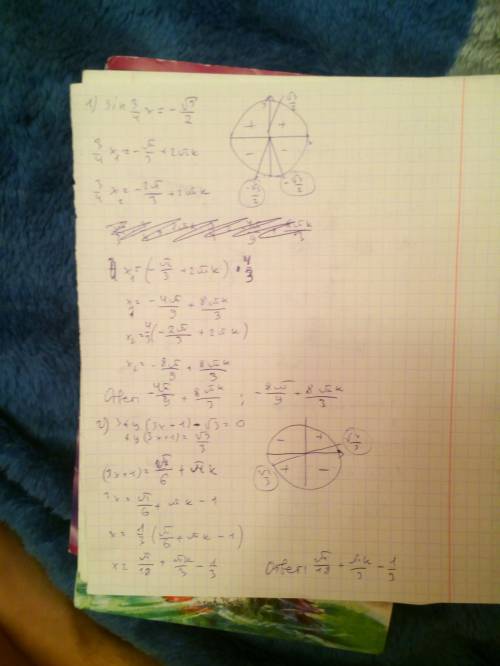 1) sin 3/4 x = - √3/2
3/4 x₁ = - π/3 + 2πk
3/4 x₂ = - 2π/3 + 2πk
x₁ = (- π/3 + 2πk) · 4/3
x₁ = - 4π/9 + 8πk/3
x₂ = 4/3 (- 2π/3 + 2πk)
x₂ = - 8π/9 + 8πk/3
Ответ: - 4π/9 + 8πk/3 ; - 8π/9 + 8πk/3
2) 3tg (3x+1) - √3 = 0
tg (3x+1) = √3/3
(3x+1) = π/6 + πk
3x = π/6 + πk - 1
x = 1/3 (π/6 + πk - 1)
x = π/18 + πk/3 - 1/3
Ответ: π/18 + πk/3 - 1/3